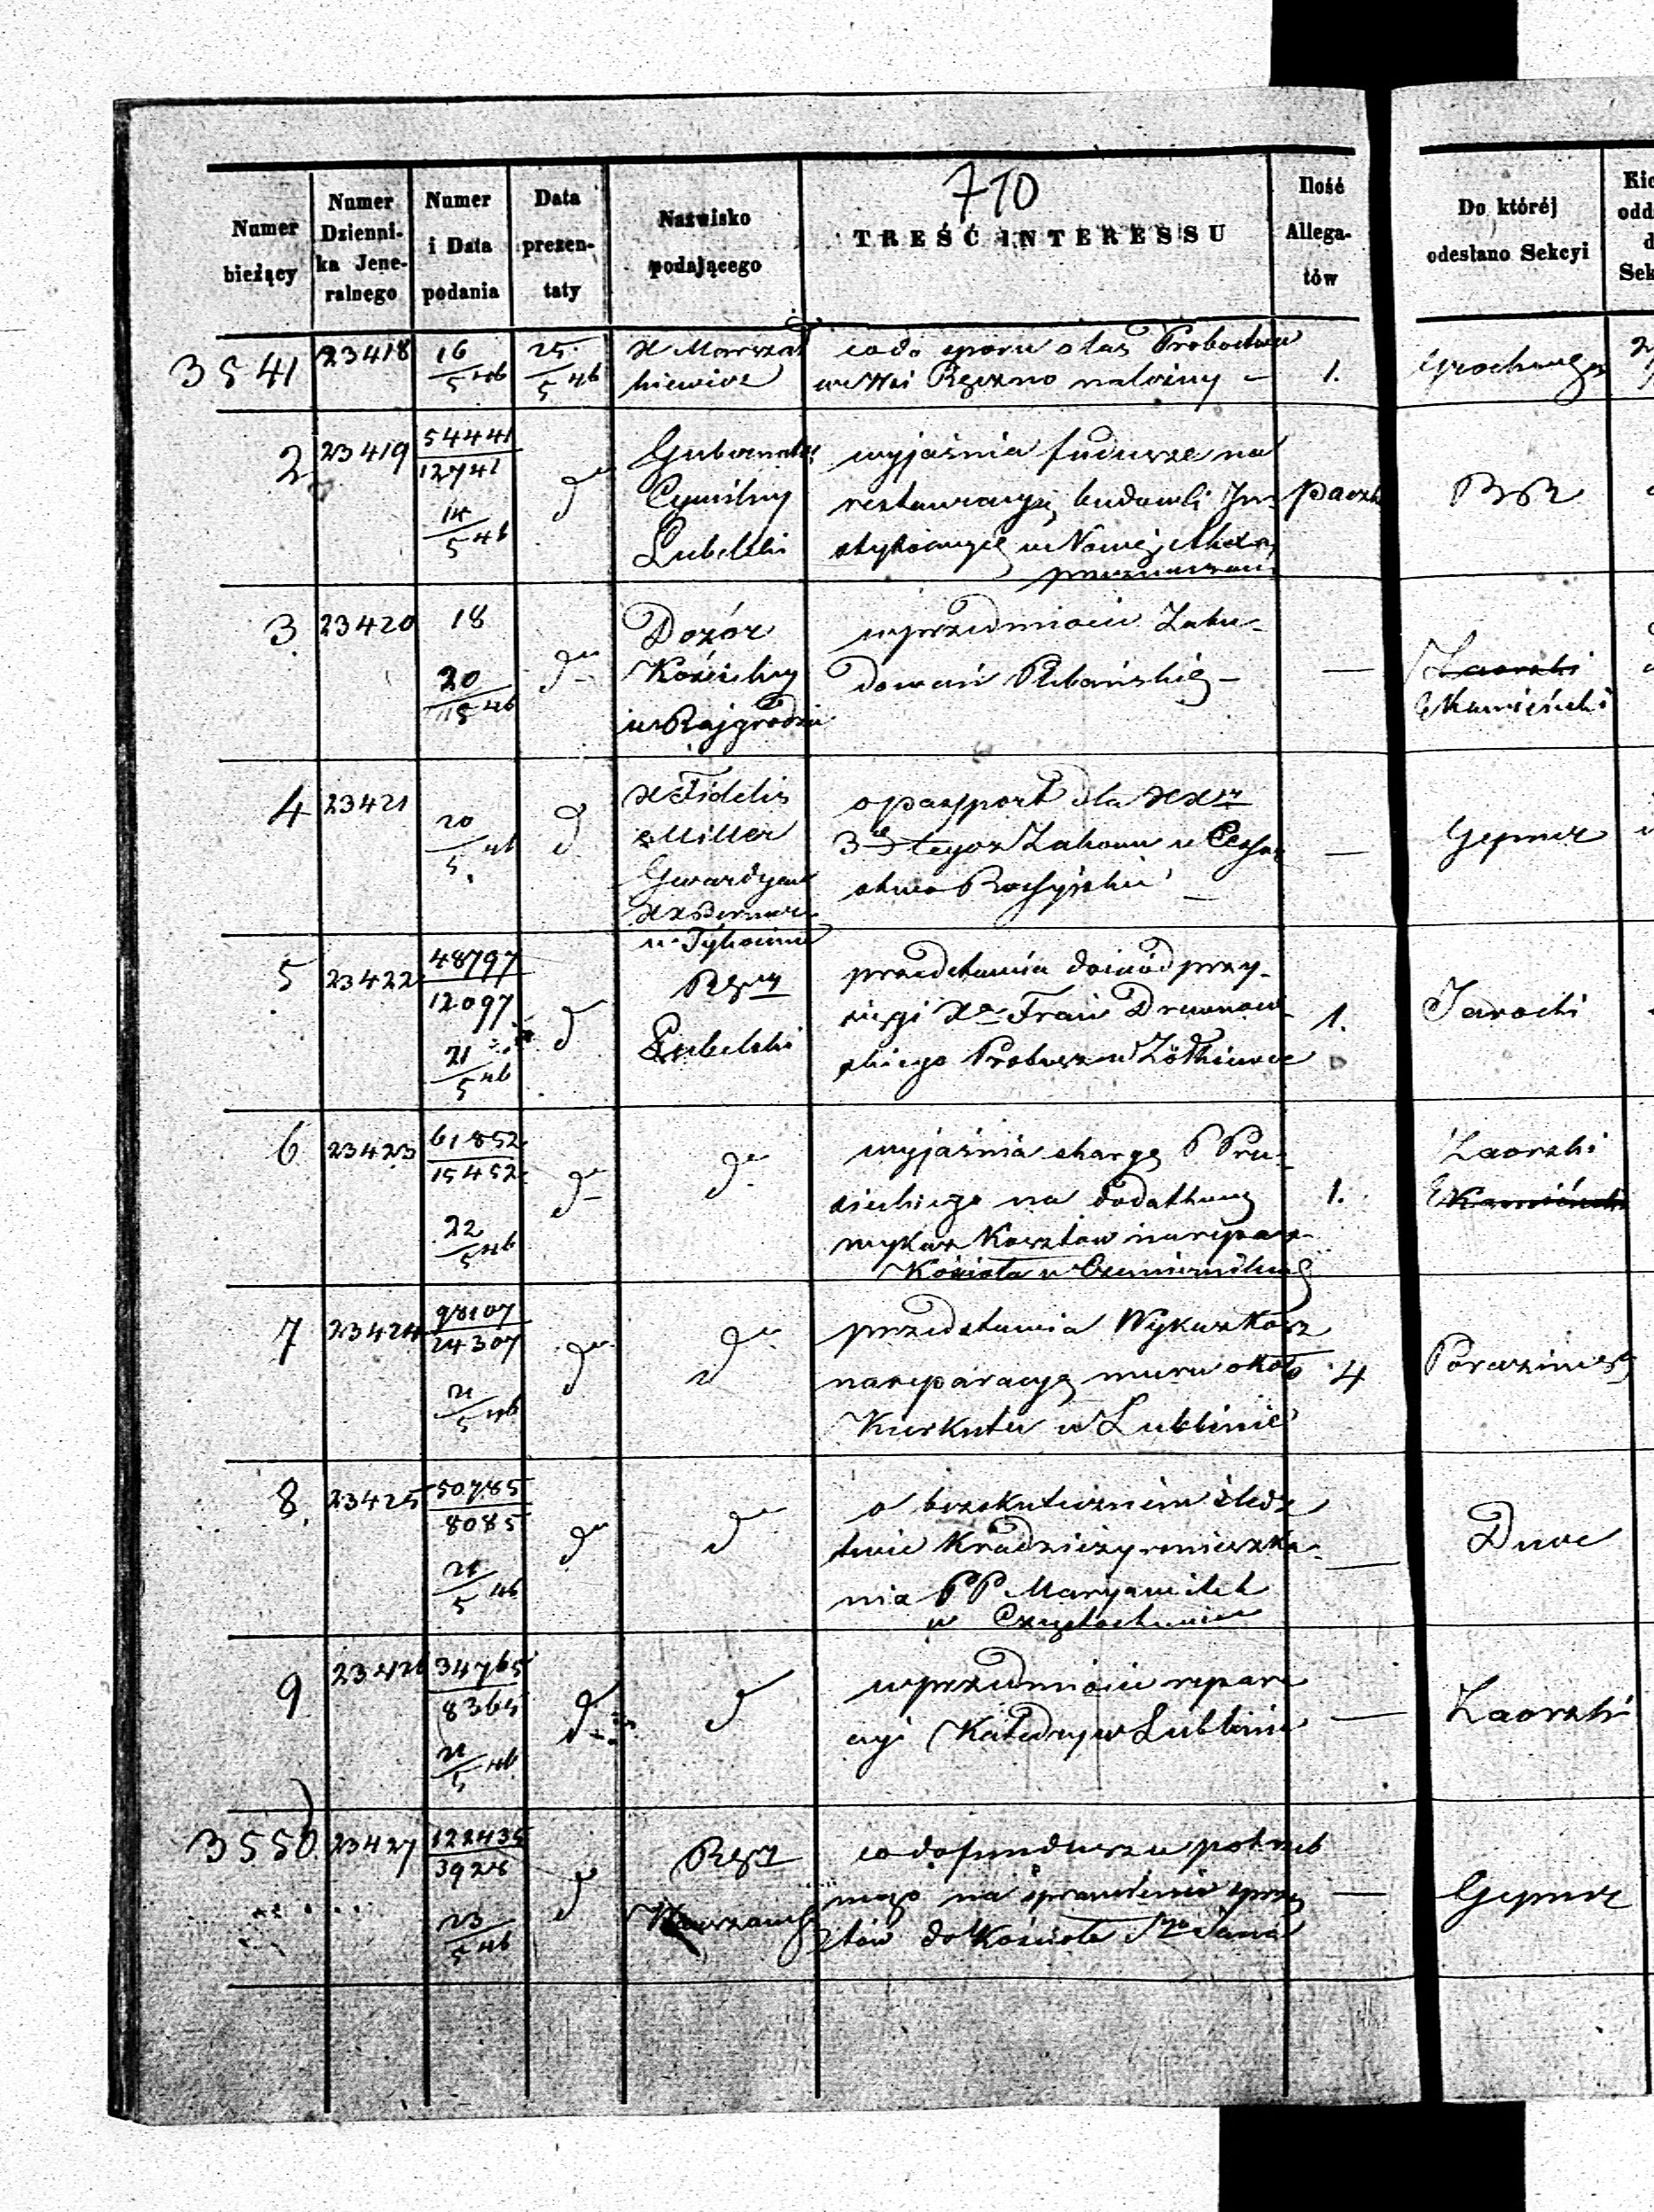 710
Numer bieżący
Numer Dzienni-ka Jene-ralnego
Numer i Data podania
Data prezen-taty
Nazwisko podającego
TREŚĆ INTERESSU
Ilość Allega-tów
Do któréj odesłano Sekcyi
3541 23418 16/5 46 25/5 46
X Marszał
kiewicz
co do sporu o las Probostwu
we Wsi Ręczno należny – 1.
2 23419 54441/12741 14/5 46 do
Gubernator
Cywilny
Lubelski
wyjaśnia fudusze na
restauracyą budowli In- paczka
w Nowej Alexan
3 23420 18 20/5 46 do
Dozór
Kościelny
w Rajgrodzie
w przedmiocie Zabu-
dowań Plebańskich –
Zaorski
Kamiéński
4 23421 20/5 46 do
X Fidelis
Miller
Gwardyan
w Tykocinie
o passport dla XX
3ch tegoż Zakonu w Cesar
stwo Rossyjskie –
Gepner
5 23422 48797/12097 21/5 46 do
Rząd
Lubelski
przedstawia dowód przy-
sięgi Xa Fran Drewnow
skiego Probosz w Żółkiewce
1.
Jarocki
6 23423 61852/15452 22/5 46 do do
wyjaśnia skargę P Pru-
sieckiego na dodatkowy
wykaz Kosztów na repar
Kościoła w
1.
Zaorski
Kamiéński
7 23424 98107/24307 21/5 46 do do
przedstawia Wykaz Kosz
na reparacyę muru około
Kirkutu w Lublinie
4
8 23425 50785/8085 21/5 46 do do
o bezskutecznem śledz
twie Kradzieży z mieszka-
nia PP Maryawitek
w Częstochowie
Duve
9 23426 34765/8365 21/5 46 do do
w przedmiocie repara
cyi Katedry w Lublinie
Zaorski
3550 23427 122435/3928 23/5 46 do
Rząd
Warszawsk
co do funduszu potrzeb
nego na sprawienie sprzę
tów do Kościoła Sgo Jana
Gepner